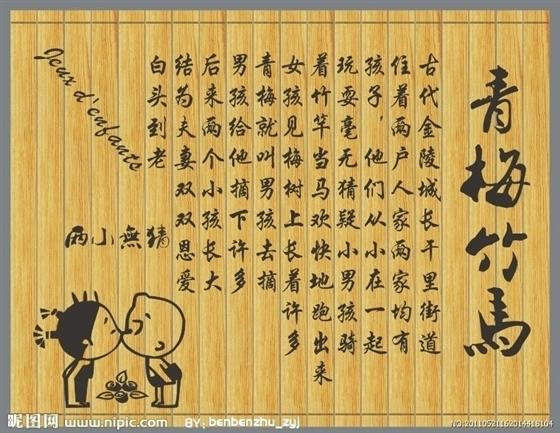 青梅竹馬
古代金陵城长干里街道
住着两户人家两家均有
孩子，他们从小在一起
玩耍毫无猜疑小男孩骑
着竹竿当马欢快地跑出来
女孩见梅树上长着许多
青梅就叫男孩去摘
男孩给他摘下许多
后来两个小孩长大
结为夫妻双双恩爱
白头到老
Jeux d'enfants
两小無猜
昵图网 www.nipic.com BY: benbenzhu_zyj